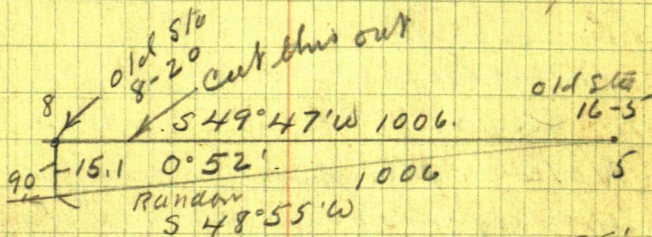 old Sta
8-20
cut this out
8
old Sta
16-5
S 49°47'W 1006.
90
15.1
0°52'.
1006
5
Random
S 48°55'W